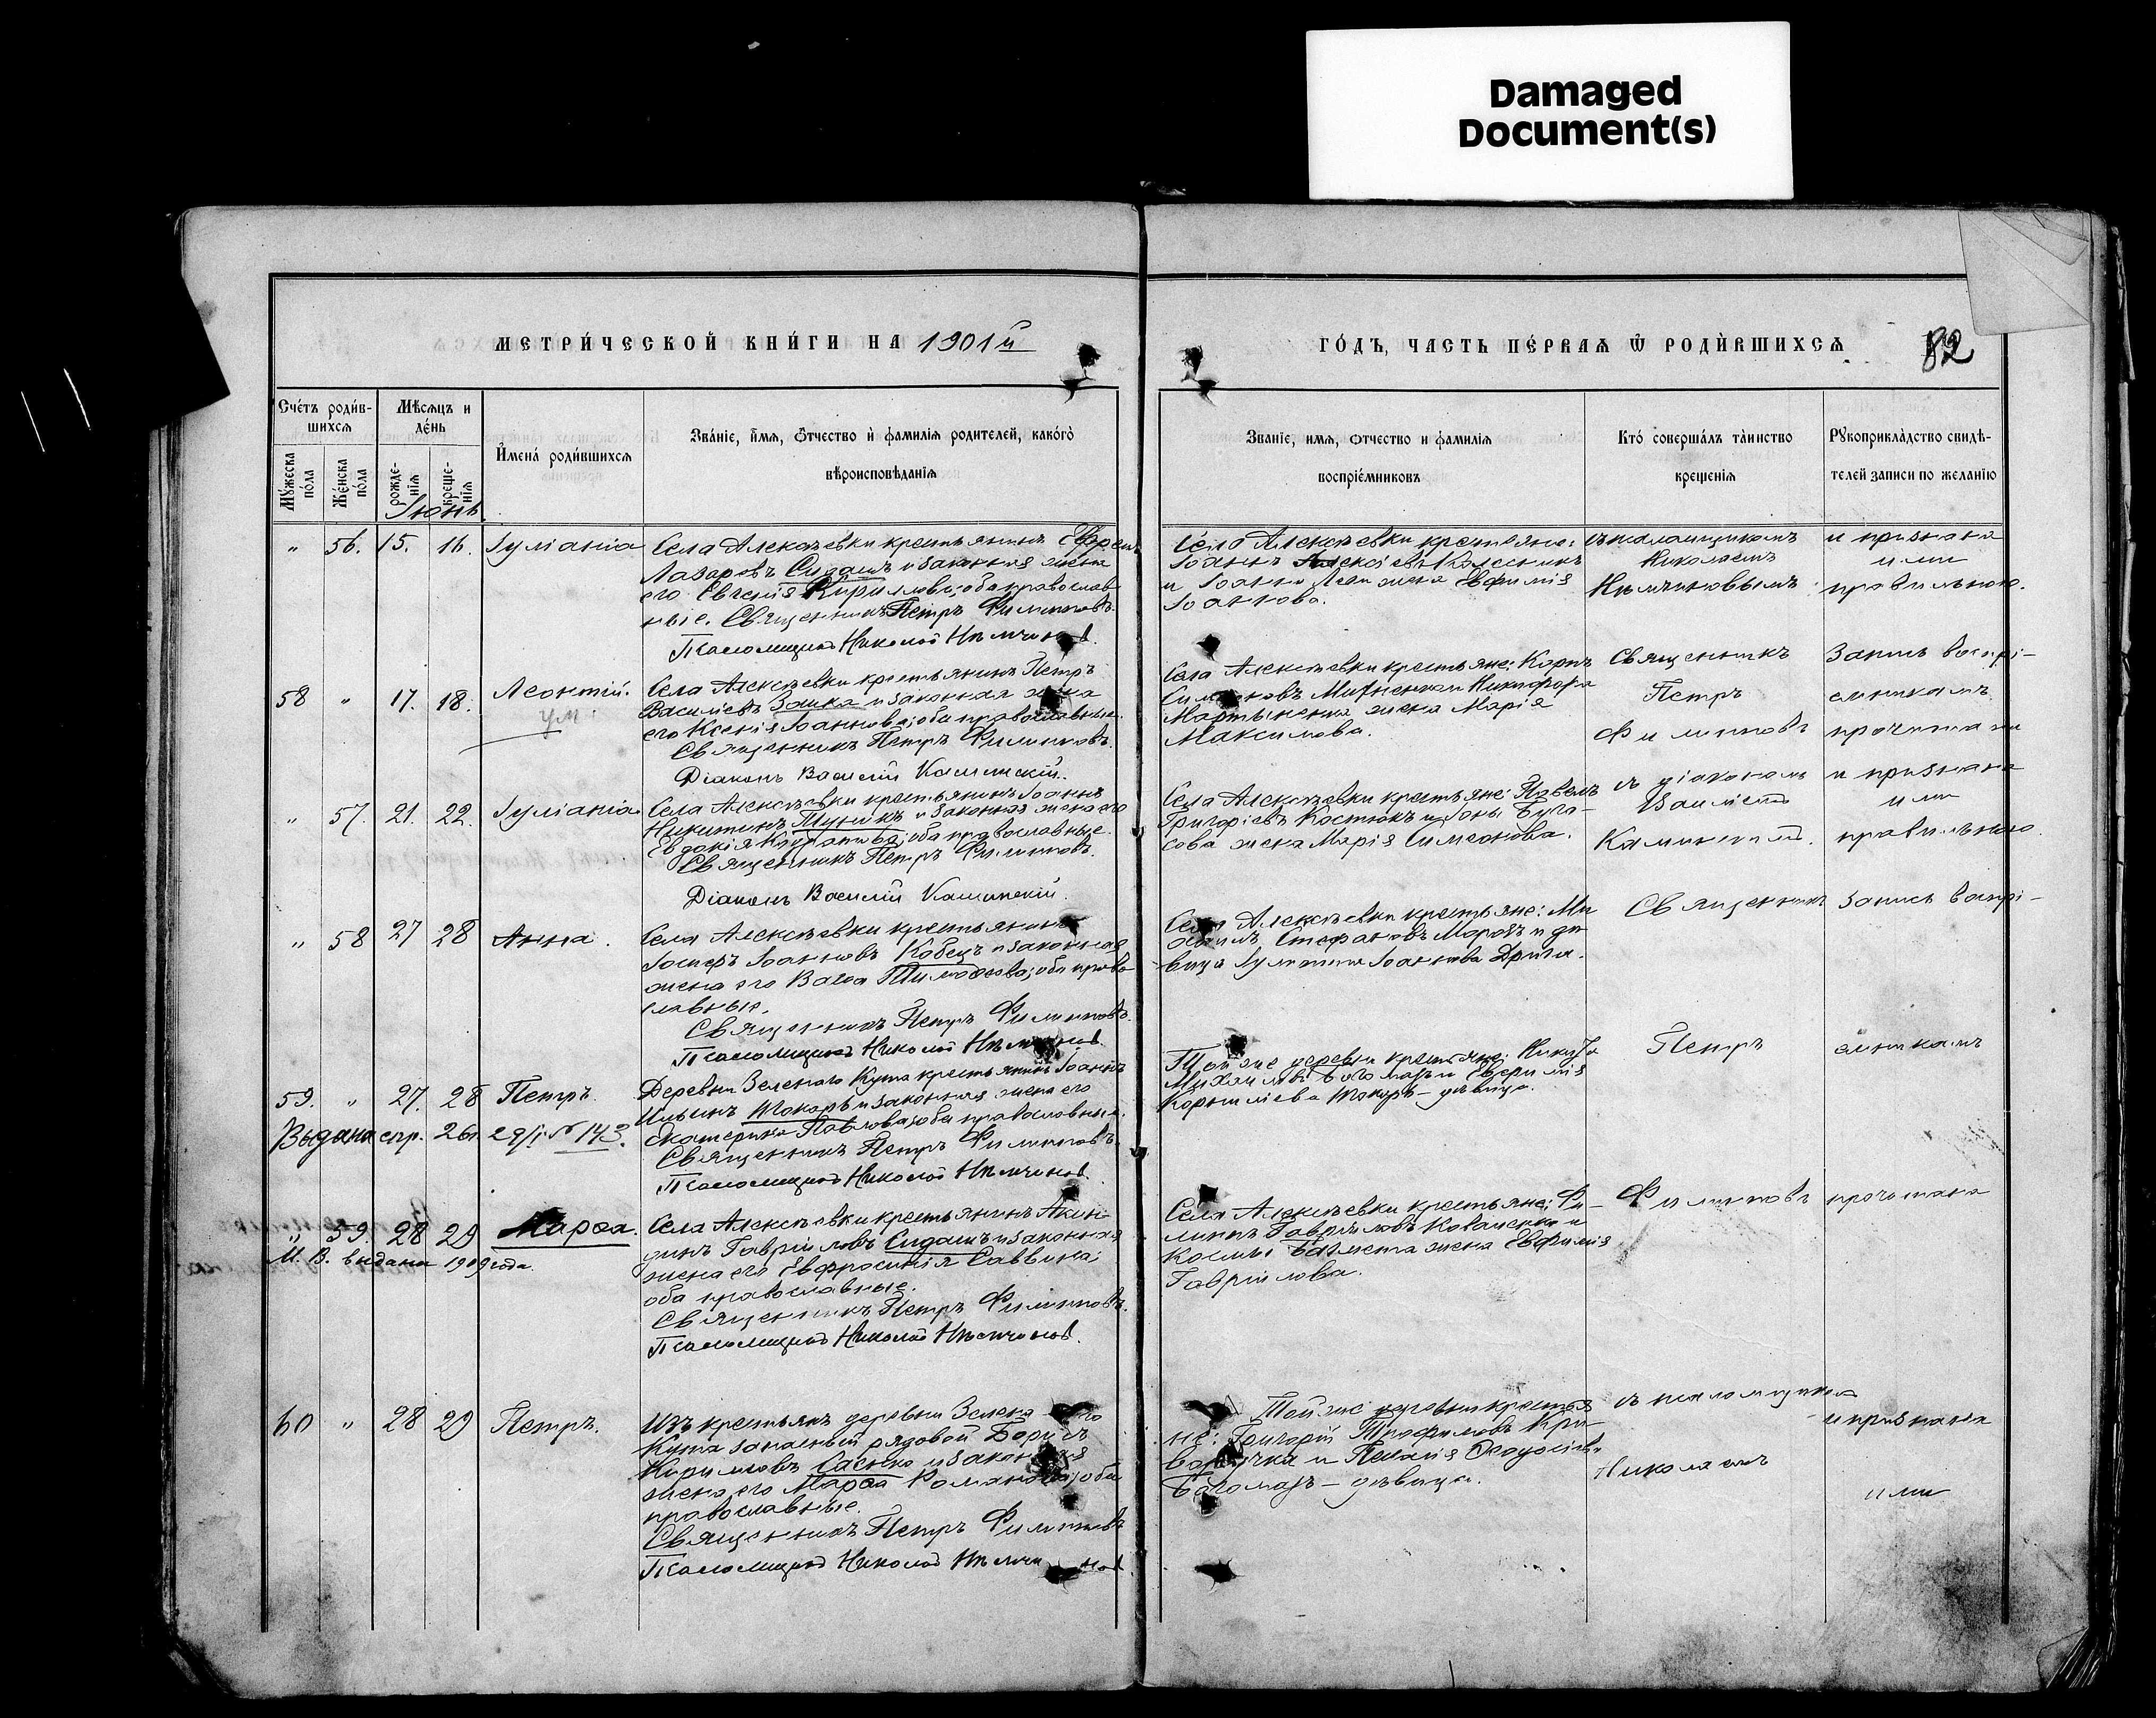 Damaged
Document(s)
МЕТРИ́ЧЕСКОЙ КНИ́ГИ НА 1901й
ГО́ДЪ, ЧАСТЬ ПЕ́РВАѦ Ѿ РОДИ́ВШИХСѦ
82
Сче́тъ роди́в-
шихсѧ
Мѣ́сѧцъ и
де́нь
Мꙋ́жеска
по́ла
Же́нска
по́ла
рожде-
нїѧ
креще-
нїѧ
И҆мена̀ роди́вшихсѧ
Зва́нїе, и҆́мѧ, ѻ҆́тчество и҆ фамилїѧ родителей, како́гѡ
вѣроисповѣданїѧ
Званїе, имѧ, отчество и фамилїѧ
воспрїе́мниковъ
Кто́ совершáлъ та́инство
крещенїѧ
Рꙋкоприкла́дство свидѣ-
телей записи по желанїю
Іюнь.
" 56. 15. 16. Іуліанія
Села Алексѣевки крестьянинъ Ефремъ
Лазаревъ Сидашъ и законная жена
его Евгенія Кириллова; оба православ
ные. Священникъ Петръ Филипповъ.
Псаломщикъ Николай Нѣмчиновъ.
Села Алексѣевки крестьяне:
Іоаннъ Алексіевъ
и Іоанна жена Евфимія
Іоаннова.
съ псаломщикомъ
Николаемъ
Нѣмчиновымъ
и признана
ими
правильною.
58 " 17. 18. Леонтій.
ум.
Села Алексѣевки крестьянинъ Петръ
Василіевъ Заика и законная жена
его Ксенія Іоаннова; оба православные.
Священникъ Петръ Филипповъ.
Діаконъ Василій Калинскій.
Села Алексѣевки крестьяне: Карпъ
Симеоновъ и Никифора
Мартыненка жена Марія
Максимова.
Священникъ
Петръ
Филипповъ
Запись воспрі-
емникамъ
прочитана
" 57. 21. 22. Іуліанія
Села Алексѣевки крестьянинъ Іоаннъ
Никитинъ и законная жена его
Евдокія Кодратова; оба православные.
Священникъ Петръ Филипповъ.
Діаконъ Василій Калинскій.
Села Алексѣевки крестьяне: Павелъ
Григоріевъ Костюкъ и Іоны Буга-
сова жена Марія Симеонова.
съ діакономъ
Василіемъ
и признана
ими
правильною
" 58 27 28 Анна.
Села Алексѣевки крестьянинъ
Іосифъ Іоанновъ Кобецъ и законная
жена его Васса Тимофеева; оба право
славные.
Священникъ Петръ Филипповъ.
Псаломщикъ Николай Нѣмчиновъ
Села Алексѣевки крестьяне: Ми
хаилъ Стефановъ Морозъ и дѣ
вица Іуліанія Іоаннова Дрига.
Священникъ
Запись воспрі-
59. " 27. 28 Петръ.
Выдана спр. 26
№ 143.
Деревни Зеленаго Кута крестьянинъ Іоаннъ
Ильинъ Токарь и законная жена его
Екатерина Павлова; оба православные.
Священникъ Петръ Филипповъ
Псаломщикъ Николай Нѣмчиновъ
Той же деревни крестьяне: Никита
Михаиловъ Богомазъ и Евфимія
Корниліева Токарь - дѣвица.
Петръ
емникамъ
" 59. 28 29 Марѳа.
М. В. выдана 1909 года.
Села Алексѣевки крестьянинъ Акин-
динъ Гавріиловъ Сидашъ и законная
жена его Евфросинія Саввина;
оба православные.
Священникъ Петръ Филипповъ.
Псаломщикъ Николай Нѣмчиновъ.
Села Алексѣевки крестьяне: Фи-
липпъ Гавріиловъ Коваленко и
Космы жена Евфимія
Гавріилова.
Филипповъ
прочитана
60 " 28 29 Петръ.
Изъ крестьянъ деревни Зеленаго
Кута запасный рядовой Борисъ
Кирилловъ Сасько и законная
жена его Марѳа Романова; оба
православные.
Священникъ Петръ Филипповъ
Псаломщикъ Николай Нѣмчиновъ
Той же деревни крестья
не: Григорій Трофимовъ Кри-
и Пелагія
Богомазъ - дѣвица.
съ псаломщикомъ
Николаемъ
и признана
ими